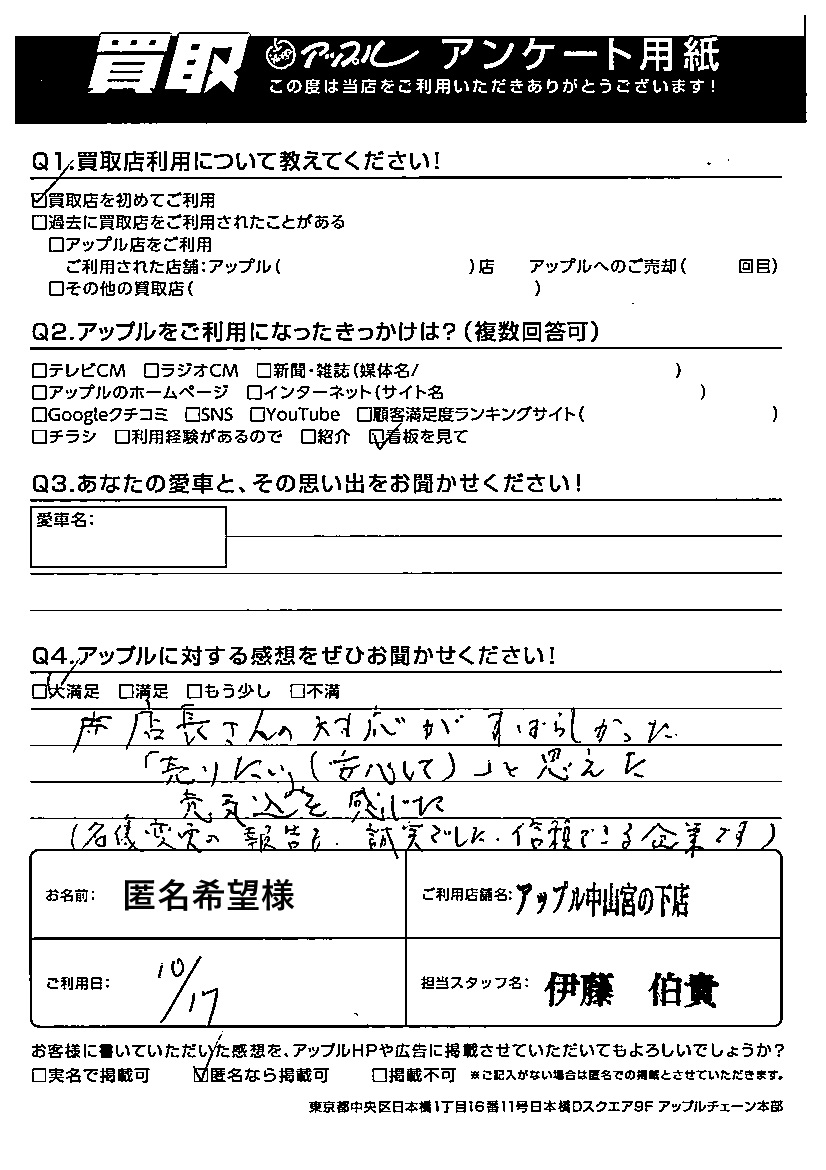 買取 アップル アンケート用紙
この度は当店をご利用いただきありがとうございます!
Q1.買取店利用について教えてください!
☑買取店を初めてご利用
□過去に買取店をご利用されたことがある
□アップル店をご利用
ご利用された店舗:アップル( )店 アップルへのご売却( 回目)
□その他の買取店( )
Q2.アップルをご利用になったきっかけは?(複数回答可)
□テレビCM □ラジオCM □新聞・雑誌(媒体名/ )
□アップルのホームページ □インターネット(サイト名 )
□Googleクチコミ □SNS □YouTube □顧客満足度ランキングサイト( )
□チラシ □利用経験があるので □紹介 ☑看板を見て
Q3.あなたの愛車と、その思い出をお聞かせください!
愛車名:
Q4.アップルに対する感想をぜひお聞かせください!
☑大満足 □満足 □もう少し □不満
店長さんの対応がすばらしかった
「売りたい(安心して)」と思えた
を感じた
(名儀変更の報告も、誠実でした。信頼できる企業です)
お名前: 匿名希望様 ご利用店舗名:アップル中山宮の下店
ご利用日: 10/17 担当スタッフ名: 伊藤 伯貴
お客様に書いていただいた感想を、アップルHPや広告に掲載させていただいてもよろしいでしょうか?
□実名で掲載可 ☑匿名なら掲載可 □掲載不可 ※ご記入がない場合は匿名での掲載とさせていただきます。
東京都中央区日本橋1丁目16番11号日本橋Dスクエア9F アップルチェーン本部